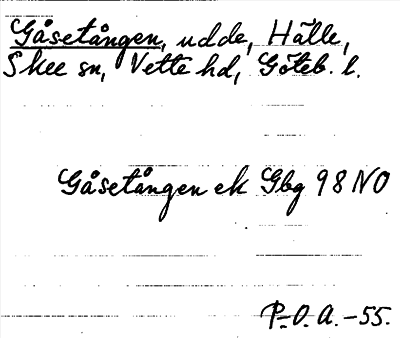 Gåsetången, udde, Hälle,
Skee sn, Vette hd, Göteb. l.
Gåsetången ek Gbg 98 NO
P.-O.A. -55.